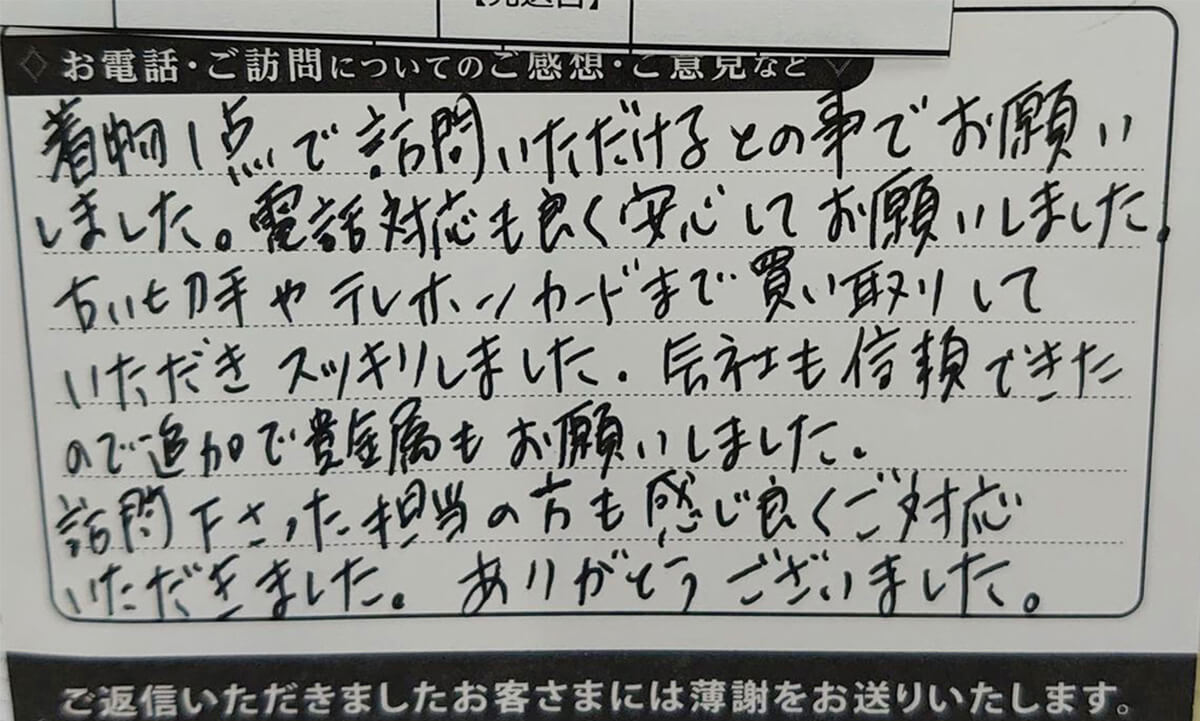 お電話・ご訪問についてのご感想・ご意見など
着物1点で訪問いただけるとの事でお願い
しました。電話対応も良く安心してお願いしました。
古い切手やテレホンカードまで買い取りして
いただきスッキリしました。会社も信頼できた
ので追加で貴金属もお願いしました。
訪問下さった担当の方も感じ良くご対応
いただきました。ありがとうございました。
ご返信いただきましたお客さまには薄謝をお送りいたします。